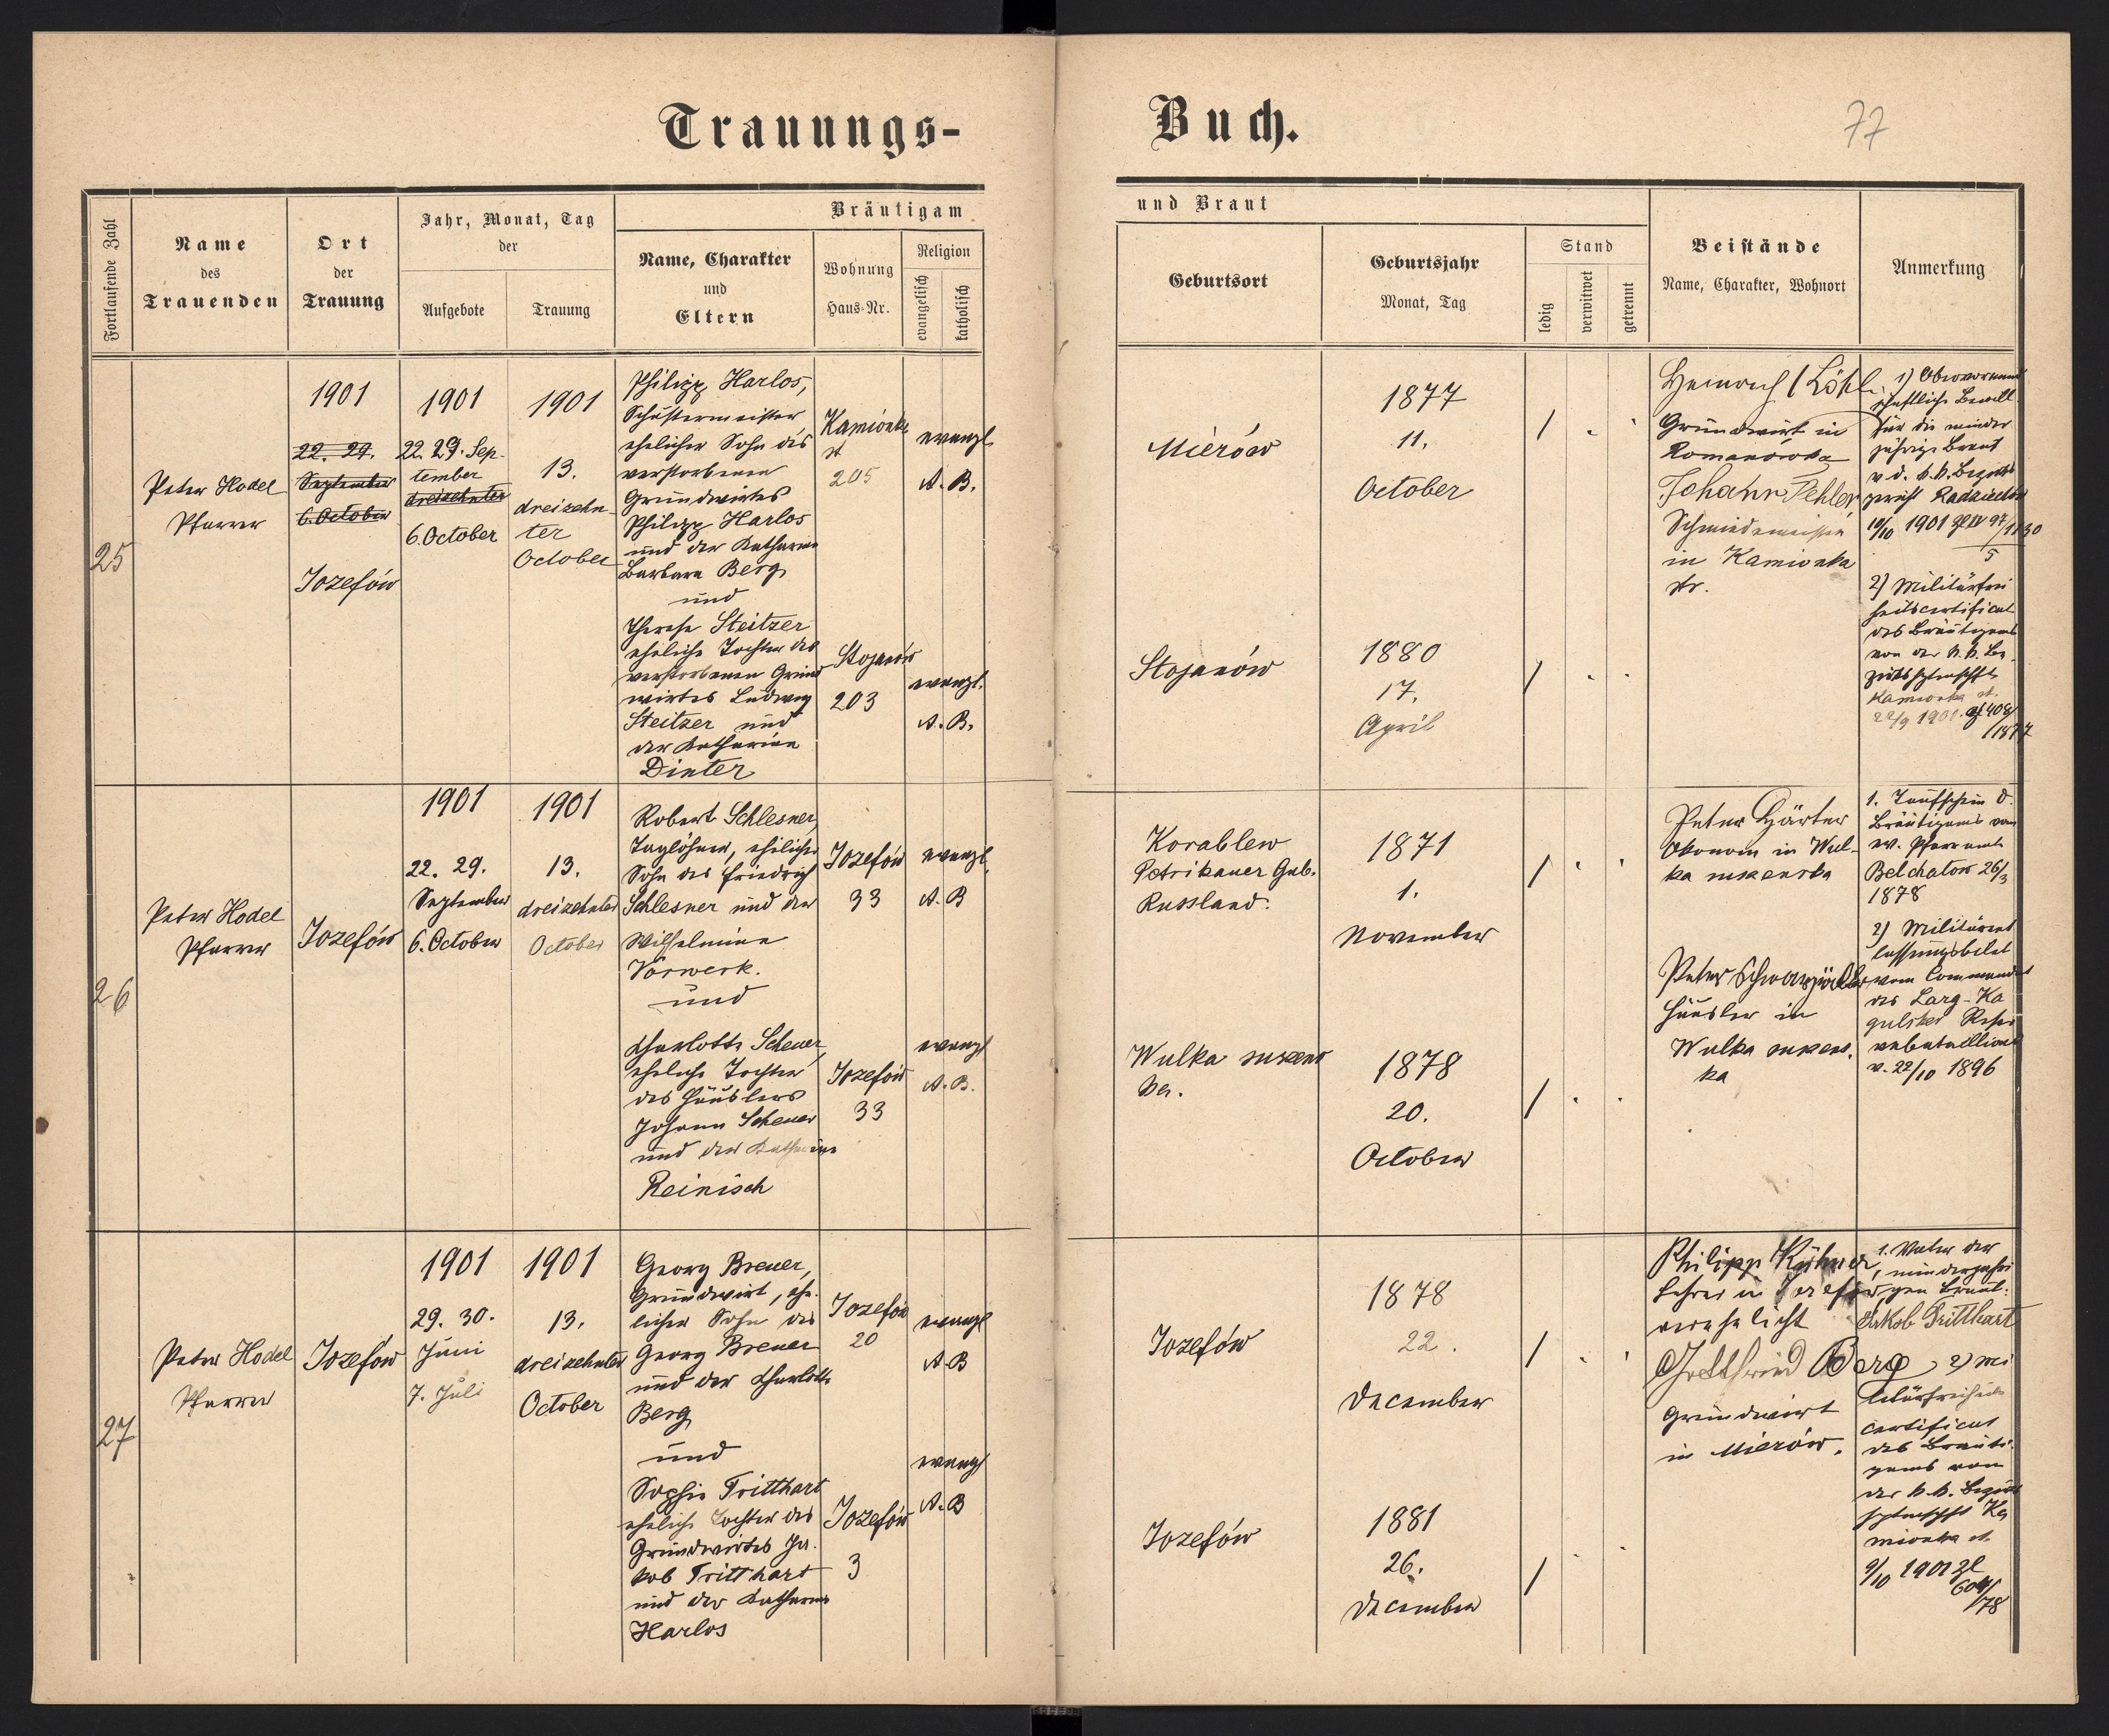 Trauungs-
Buch.
77
Fortlaufende Zahl
Name
des
Trauenden
Ort
der
Trauung
Jahr, Monat, Tag
der
Aufgebote
Trauung
Bräutigam
Name, Charakter
und
Eltern
Wohnung
Haus-Nr.
Religion
evangelisch
katholisch
und Braut
Geburtsort
Geburtsjahr
Monat, Tag
Stand
ledig
verwitwet
getrennt
Beistände
Name, Charakter, Wohnort
Anmerkung
25
Peter Hodel
Pfarrer
1901
22. 29.
September
6. October
Jozefów
1901
22. 29. Sep-
tember
dreizehnter
6. October
1901
13.
dreizehn-
ter
October
Philipp Harlos,
Schustermeister
ehelicher Sohn des
verstorbenen
Grundwirtes
Philipp Harlos
und der Katharina
Barbara Berg
und
Therese Steitzer
eheliche Tochter des
verstorbenen Grund
wirtes Ludwig
Steitzer und
der Katharina
Dinter
Kamionka
st
205
evangl.
A. B.
Stojanów
203
evangl.
A. B.
Mierów
1877
11.
October
Stojanów
1880
17.
April
Heinrich
Grundwirt in
Romanówka
Johann
Schmiedemeister
in Kamionka
str.
1)
für die minder
jährige Braut
v. d. k. k. Bezirks
gericht Radziechów
10/10 1901
5
2) Militärfrei
heitscertificat
des Bräutigams
von der k. k. Be
zirkshptmschft
Kamionka st.
22/9 1901.
26
Peter Hodel
Pfarrer
Jozefów
1901
22. 29.
September
6. October
1901
13.
dreizehnter
October
Robert Schlesner,
Taglöhner, ehelicher
Sohn des Friedrich
Schlesner und der
Wilhelmine
Vorwerk.
und
Charlotte Scheuer
eheliche Tochter
des Häuslers
Johann Scheuer
und der Katharina
Reinisch
Jozefów
33
evangl.
A. B
Jozefów
33
evangl
A. B.
Korablew
Petrikauer Gub.
Russland.
1871
1.
November
Wulka
1878
20.
October
Peter Gärtner
Ökonom in Wul-
ka
Peter
Häusler in
Wulka
ka
1. Taufschein d.
Bräutigams vom
ev. Pfarramte
Belchatow 26/3
1878
2) Militärent
lassungsbilet
vom Commando
des Larg-Ka
gulsker Reser
vebataillions
v. 22/10 1896
27
Peter Hodel
Pfarrer
Jozefów
1901
29. 30.
Juni
7. Juli
1901
13.
dreizehnter
October
Georg Breuer,
Grundwirt, ehe-
licher Sohn des
Georg Breuer
und der Charlotte
Berg
und
Sophie Tritthart
eheliche Tochter des
Grundwirtes Ja-
kob Tritthart
und der Katharina
Harlos
Jozefów
20
evangl
A. B
Jozefów
3
evangl
A. B
Jozefów
1878
22.
December
Jozefów
1881
26.
December
Philipp
Lehrer in Jozefów
verehelicht
Gottfried Berg
Grundwirt
in Mierów.
1. Vater der
minderjähri
gen Braut:
Jakob Tritthart
2) Mi
litärfreiheits
certificat
des Bräuti
gams von
der k. k. Bezirks
hptmschft Ka
mionka st.
9/10 1901 Zl
604/
78